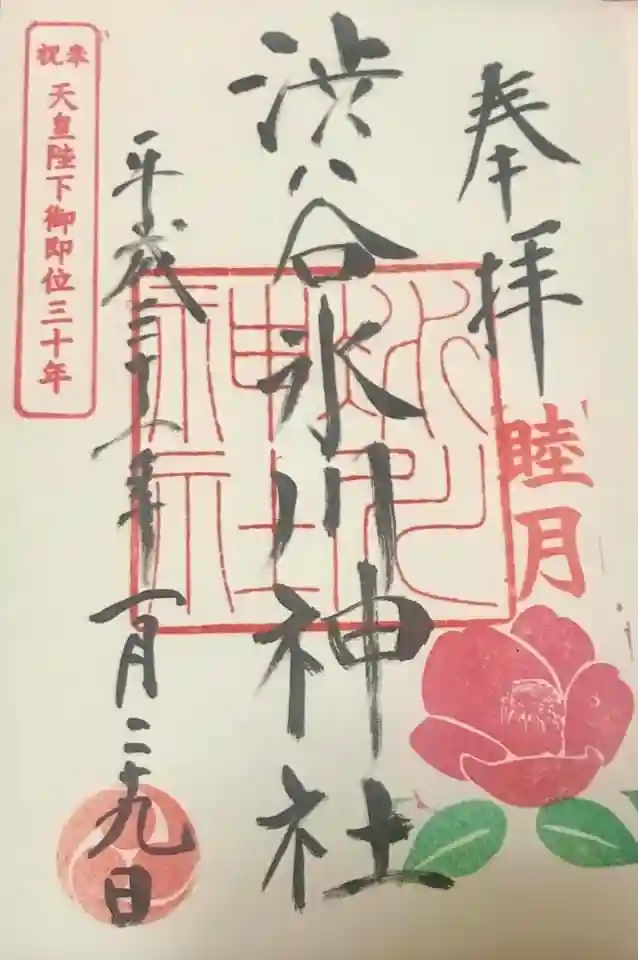 奉拝
睦月
渋谷氷川神社
氷川神社
平成三十一年一月二十九日
奉祝
天皇陛下御即位三十年